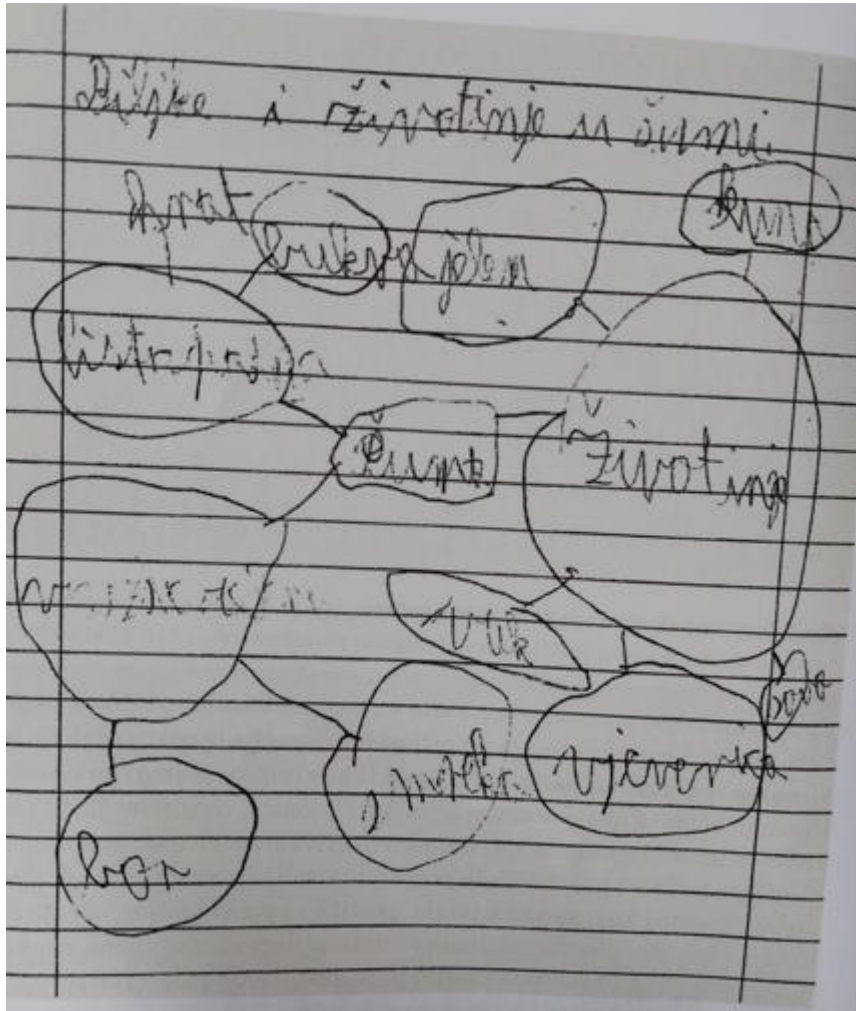 Biljke i životinje u šumi.
hrast bukva jelen kuna
listopadna
Šuma
Životinje
vuk
smreka vjeverica
bor